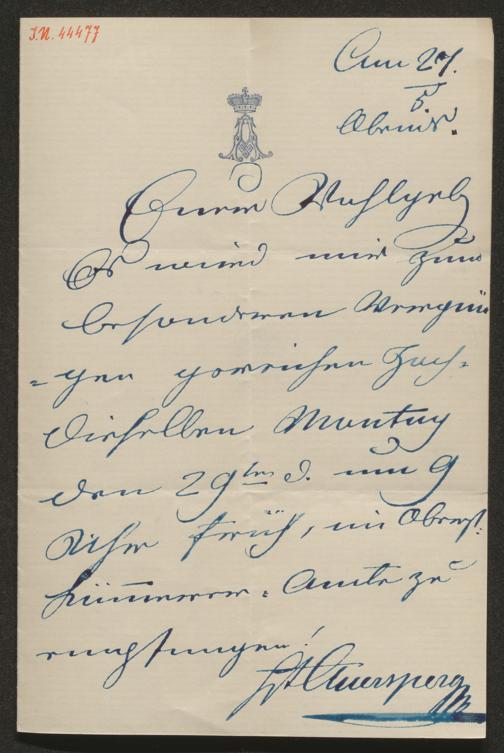 J.N. 44477
Am 27.
5.
Abends.
Euer Wohlgeb
Es wird mir zum
besonderen Vergnü
=gen gereichen Hoch=
dieselben Montag
den 29ten d. um 9
Uhr früh, im Oberst=
kämmerer=Amte zu
empfangen!
Auersperg